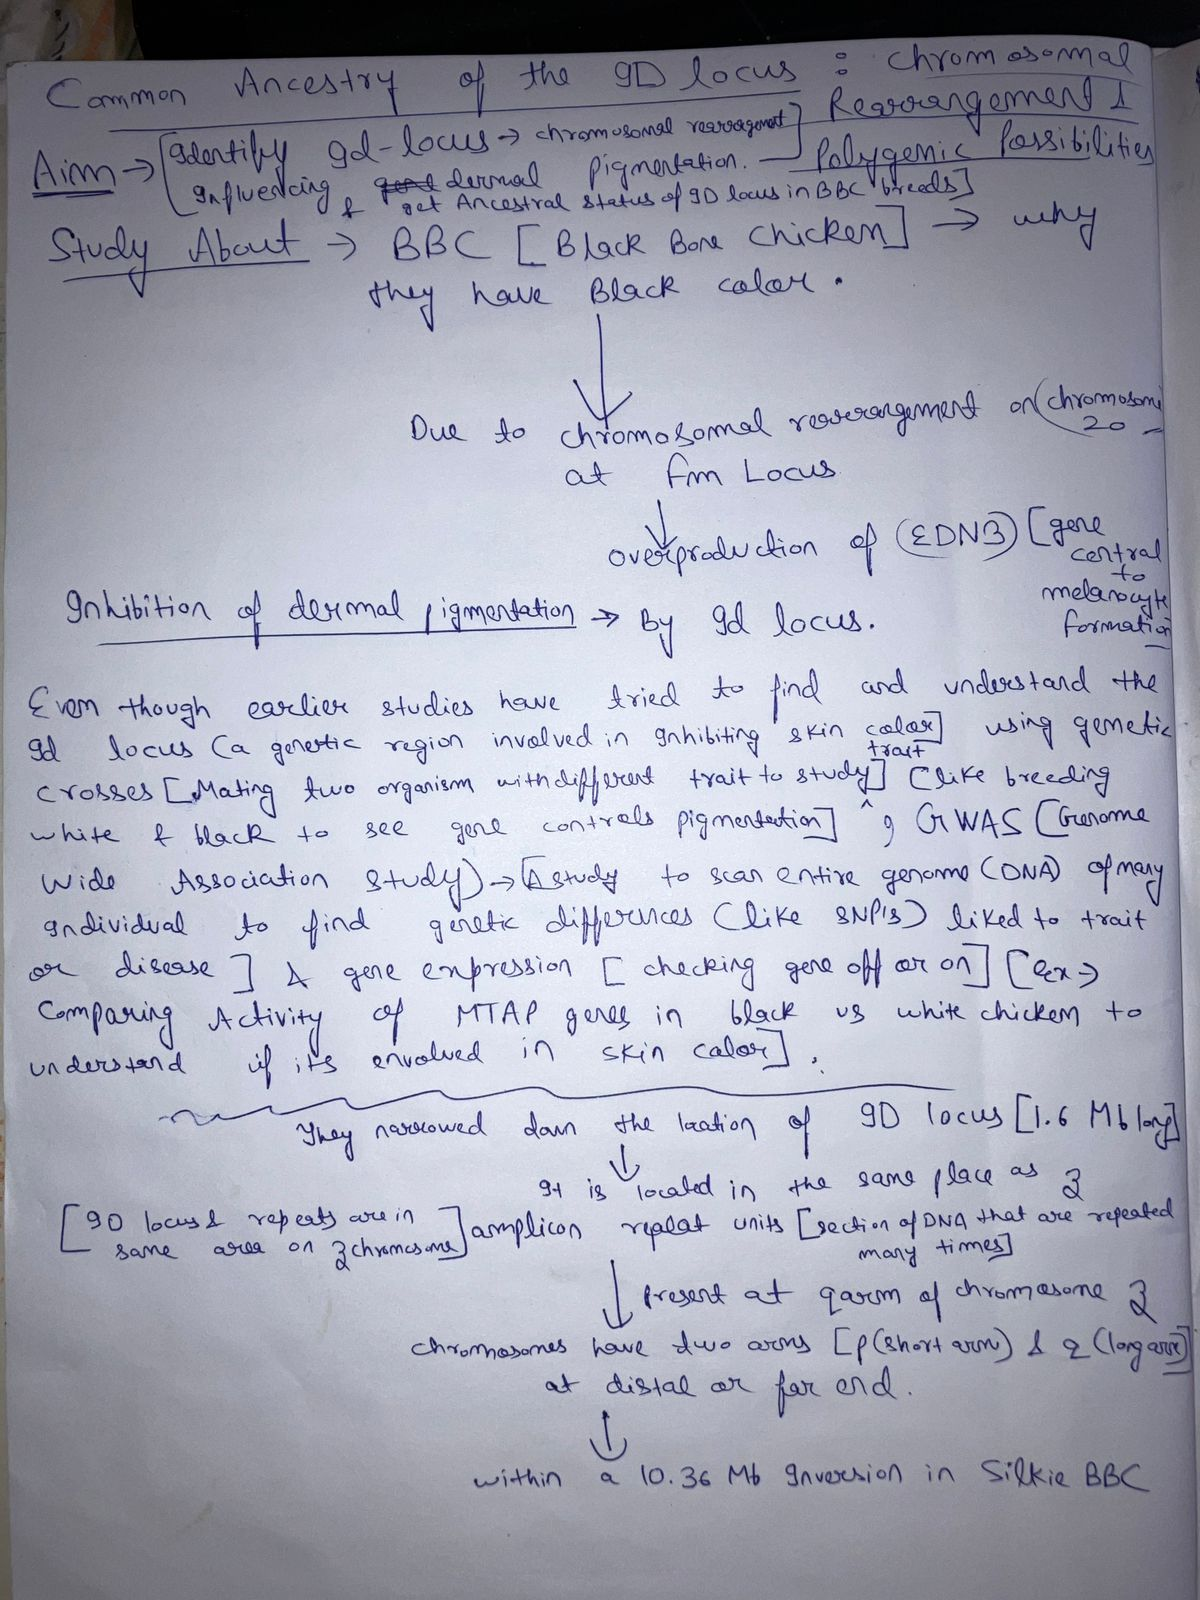 Common Ancestry of the ID locus : chromosomal
Rearrangement &
Polygenic Possibilities
Aim → [Identify Id-locus → chromosomal rearragement]
Influencing dermal pigmentation.
& get Ancestral status of ID locus in BBC breeds]
Study About → BBC [Black Bone Chicken] → why
they have Black color.
Due to chromosomal rearrangement on (chromosome
20
at Fm Locus
overproduction of (EDN3) [gene
central
to
melanocyte
formation
Inhibition of dermal pigmentation → By Id locus.
Even though earlier studies have tried to find and understand the
Id locus (a genetic region involved in Inhibiting skin color] using genetic
trait
crosses [Mating two organism with different trait to study] (like breeding
white & black to see gene controls pigmentation] , GWAS [Genome
Wide Association Study) → [A study to scan entire genome (DNA) of many
Individual to find genetic differences (like SNP's) liked to trait
or disease] & gene expression [checking gene off or on] [Ex →
Comparing Activity of MTAP genes in black vs white chicken to
understand if its envolved in skin color].
They narrowed down the location of ID locus [1.6 Mb long]
It is located in the same place as Z
[ID locus & repeats are in
same area on Z chromosome]
amplicon repeat units [section of DNA that are repeated
many times]
Present at q arm of chromosome Z
chromosomes have two arms [p (short arm) & q (long arm)]
at distal or far end.
within a 10.36 Mb Inversion in Silkie BBC